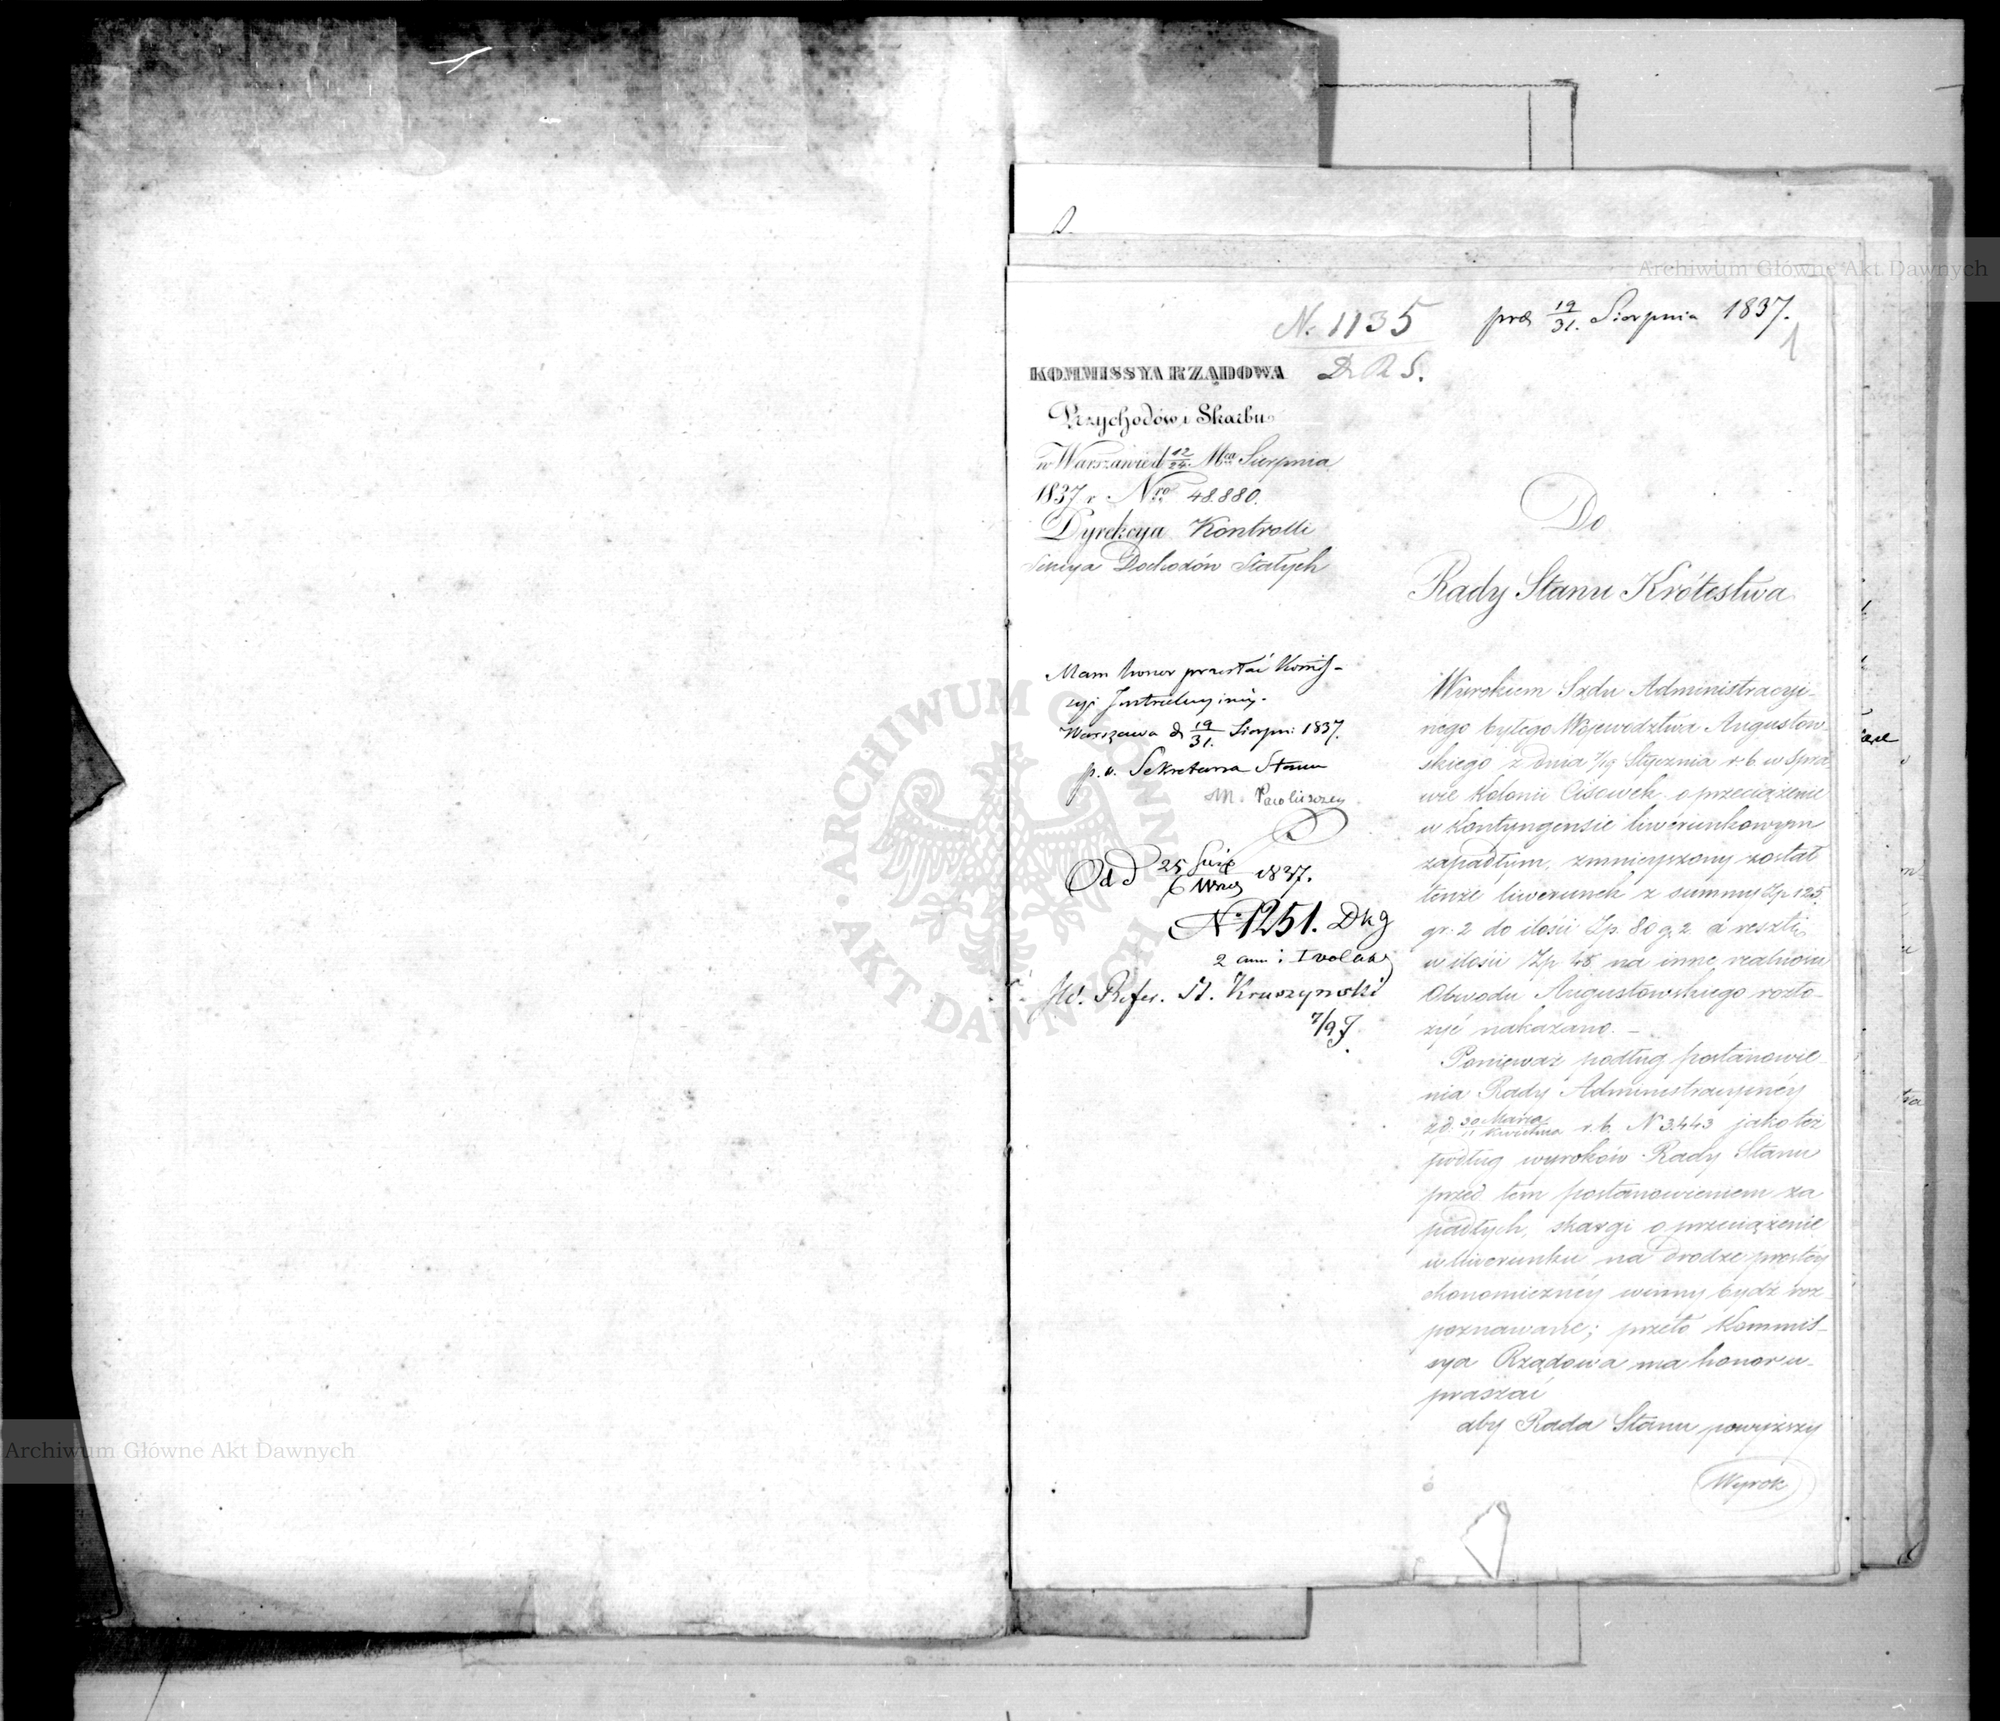 Archiwum Główne Akt Dawnych
N. 1135
D.R.S.
prez 19/31. Sierpnia 1837.
1
KOMMISSYA RZĄDOWA
Przychodów i Skarbu
w Warszawie d 12/24. Mca Sierpnia
1837 r. Nro 48.880.
Dyrekcya Kontrolli
Sekcya Dochodów Stałych
Mam honor przesłać Kommis-
syi Instrukcyinéy.
Warszawa d 19/31. Sierpn: 1837.
p.o. Sekretarza Stanu
M.
Od d 25 Sierp / 6 Wrzes 1837.
N. 1251. Dkg
2 ann: i I vol akt
Refer. St. Kruszyński
7/9
Do
Rady Stanu Królestwa
Wyrokiem Sądu Administracyi-
nego byłego Województwa Augustow-
skiego z dnia 7/19 Stycznia r. b. w spra-
wie Kolonii Cisowek o przeciążenie
w kontyngensie liwerunkowym
zapadłym, zmnieyszony został
tenże liwerunek z summy Zp 125
gr. 2 do ilości Zp. 80 g. 2. a resztę
w ilości Zp 45 na inne realności
Obwodu Augustowskiego rozło-
żyć nakazano. —
Ponieważ podług postanowie-
nia Rady Administracyinéy
z d. 30 Marca / 11 Kwietnia r. b. N 3443 jako też
podług wyroków Rady Stanu
przed tem postanowieniem za
padłych, skargi o przeciążenie
w liwerunku na drodze prostéy
ekonomicznéy winny bydź roz-
poznawane; przeto Kommis-
sya Rządowa ma honor u-
praszać
aby Rada Stanu powyższy
Wyrok
ARCHIWUM GŁÓWNE AKT DAWNYCH
Archiwum Główne Akt Dawnych